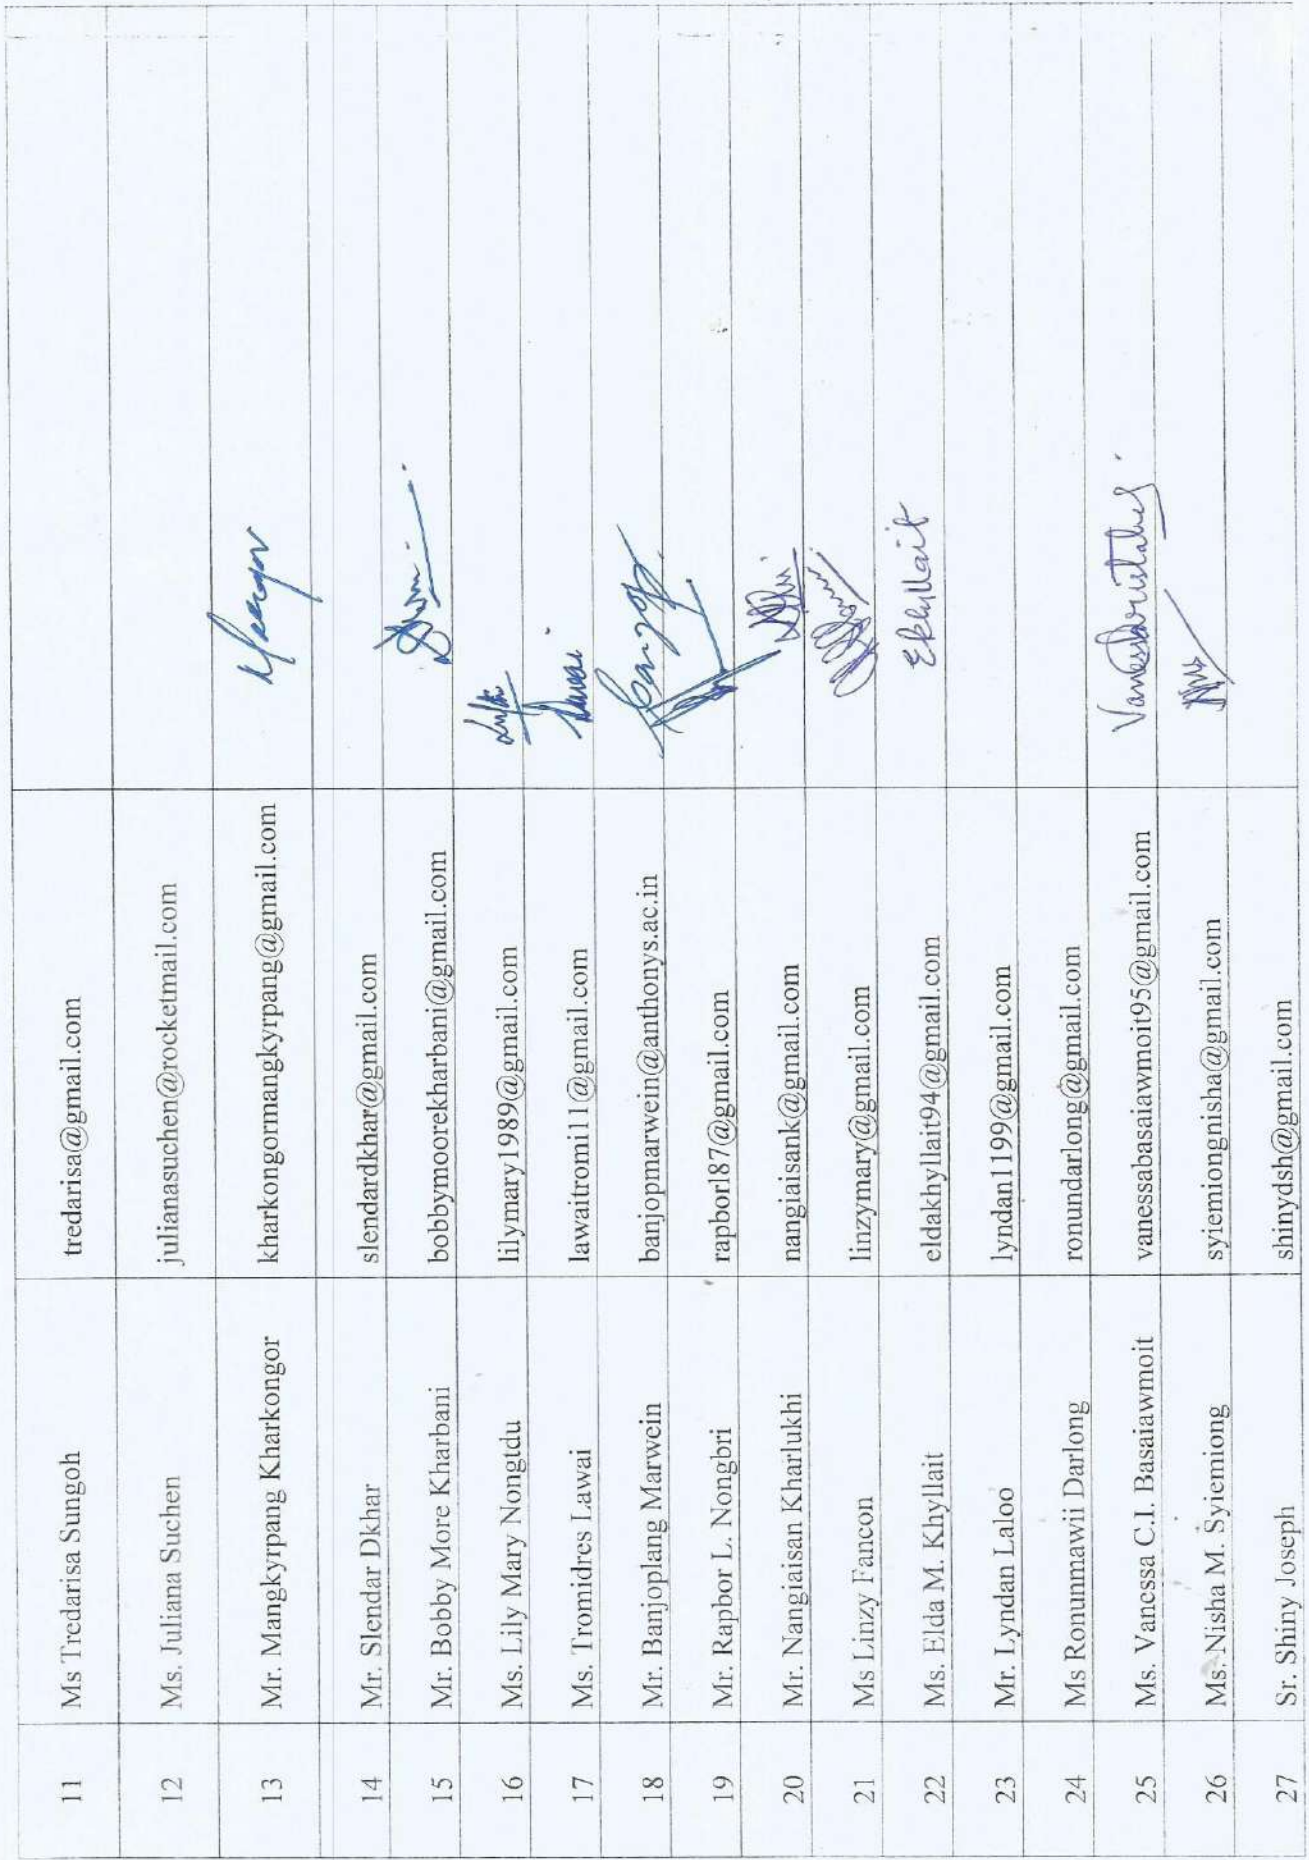 11 Ms Tredarisa Sungoh tredarisa@gmail.com
12 Ms. Juliana Suchen julianasuchen@rocketmail.com
13 Mr. Mangkyrpang Kharkongor kharkongormangkyrpang@gmail.com
14 Mr. Slendar Dkhar slendardkhar@gmail.com
15 Mr. Bobby More Kharbani bobbymoorekharbani@gmail.com
16 Ms. Lily Mary Nongtdu lilymary1989@gmail.com
17 Ms. Tromidres Lawai lawaitromi11@gmail.com
18 Mr. Banjoplang Marwein banjopmarwein@anthonys.ac.in
19 Mr. Rapbor L. Nongbri rapborl87@gmail.com
20 Mr. Nangiaisan Kharlukhi nangiaisank@gmail.com
21 Ms Linzy Fancon linzymary@gmail.com
22 Ms. Elda M. Khyllait eldakhyllait94@gmail.com EKhyllait
23 Mr. Lyndan Laloo lyndan1199@gmail.com
24 Ms Ronunmawii Darlong ronundarlong@gmail.com
25 Ms. Vanessa C.I. Basaiawmoit vanessabasaiawmoit95@gmail.com
26 Ms. Nisha M. Syiemiong syiemiongnisha@gmail.com
27 Sr. Shiny Joseph shinydsh@gmail.com